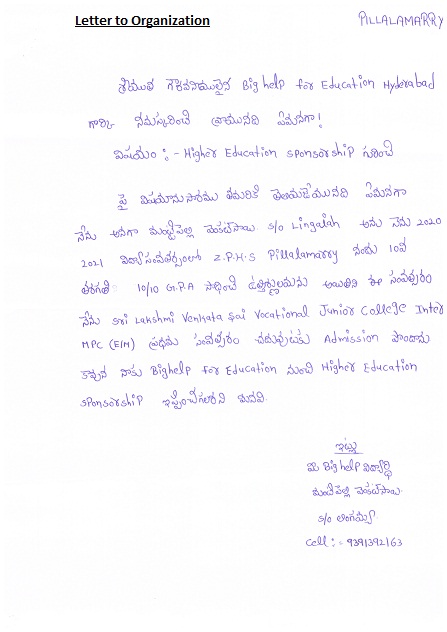 Letter to Organization
PILLALAMARRY
శ్రీయుత గౌరవనీయులైన Big help for Education Hyderabad
గారికి నమస్కరించి వ్రాయునది ఏమనగా!
విషయం :- Higher Education sponsorship గురించి
పై విషయానుసారము తమరికి తెలియజేయునది ఏమనగా
నేను అనగా వెంకటసాయి s/o Lingaiah అను నేను 2020
2021 విద్యాసంవత్సరంలో Z.P.H.S Pillalamarry నందు 10వ
తరగతి 10/10 G.P.A సాధించి ఉత్తీర్ణుడయ్యాను అయితే ఈ సంవత్సరం
నేను Sri Lakshmi Venkata Sai Vocational Junior College Inter
MPC (E/M) ప్రథమ సంవత్సరం చదువుటకు Admission పొందాను
కావున నాకు Bighelp for Education నుంచి Higher Education
sponsorship ఇప్పించగలరని మనవి.
ఇట్లు
మీ Big help విద్యార్థి
వెంకటసాయి
s/o లింగయ్య
cell :- 9391392163